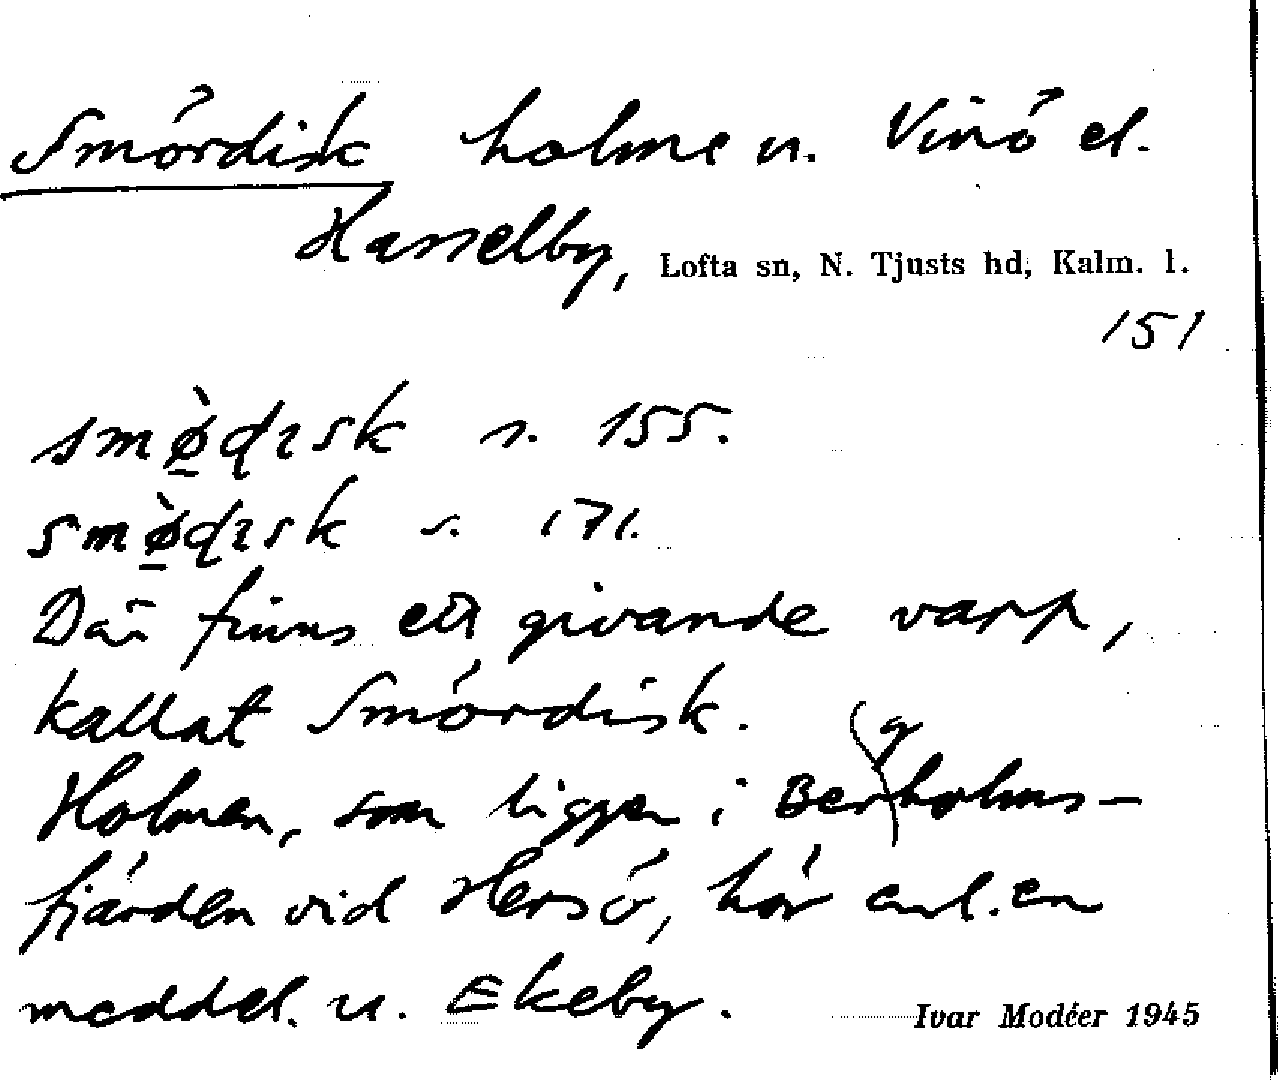 Smördisk holme u. Vinö el.
Hasselby, Lofta sn, N. Tjusts hd, Kalm. l.
151
smø̀ɖɪsk s. 155.
smø̀ɖɪsk s. 171.
Där finns ett givande varp,
kallat Smördisk.
Holmen, som ligger i Bergholms-
fjärden vid Hersö, hör enl. en
meddel. u. Ekeby.
Ivar Modéer 1945